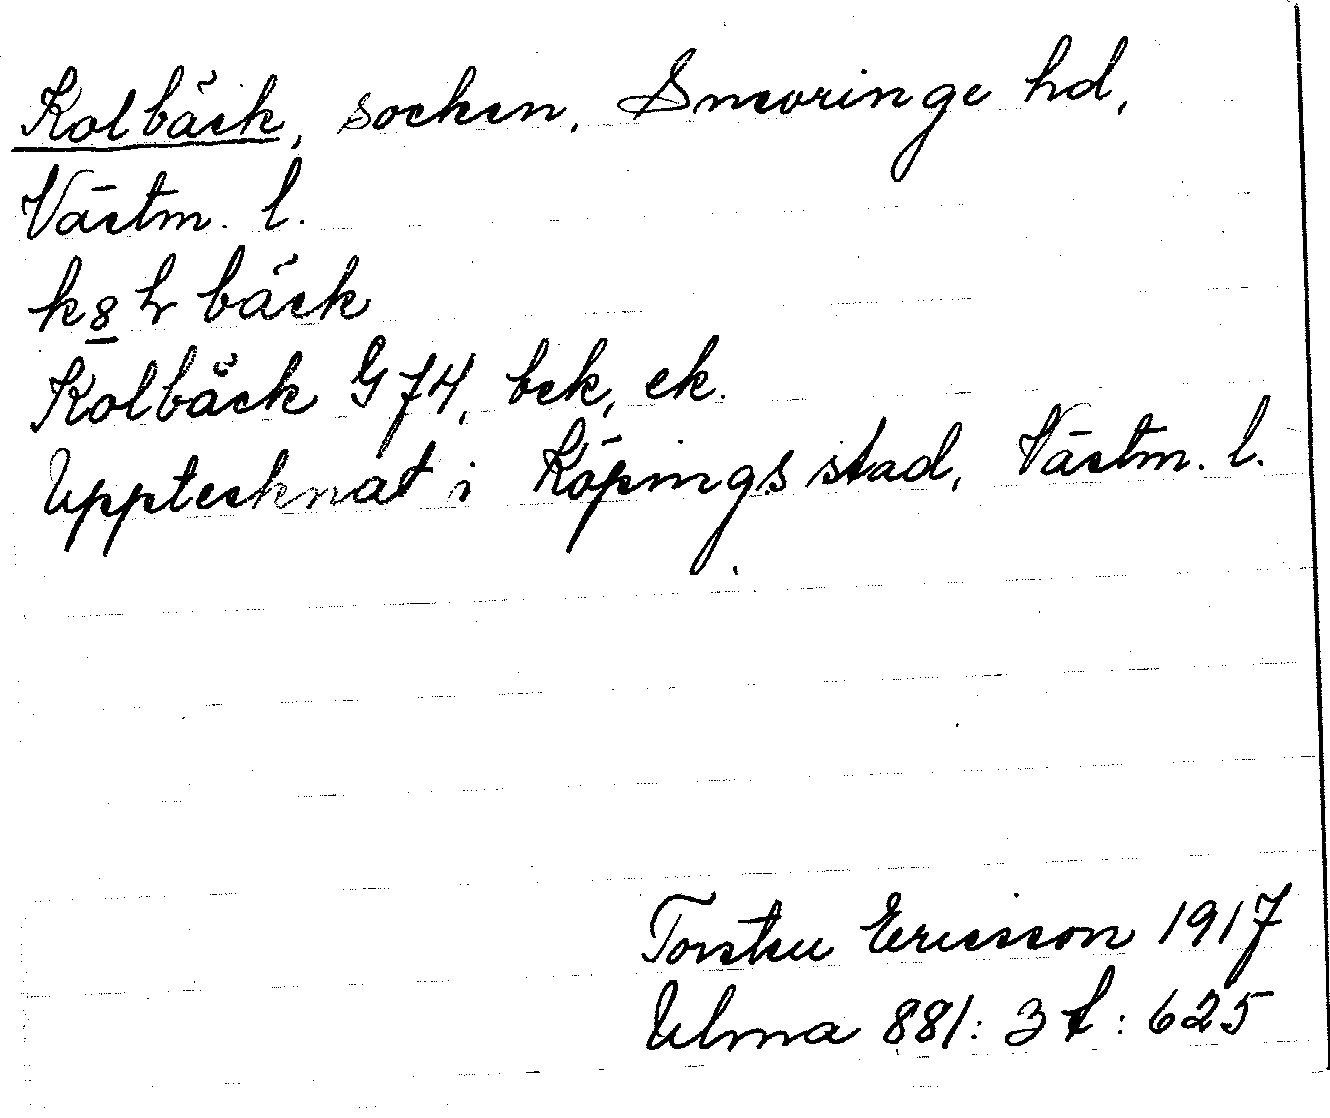 Kolbäck, socken, Snevringe hd,
Västm. l.
bäck
Kolbäck G 74, bek, ek.
Upptecknat i Köpings stad, Västm. l.
Torsten Ericsson 1917
Ulma 881: 3 f : 625